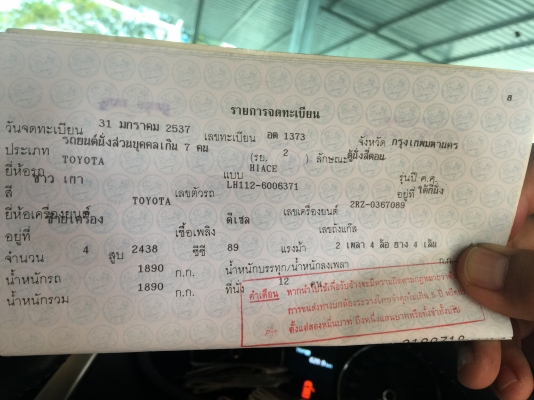 8
รายการจดทะเบียน
วันจดทะเบียน 31 มกราคม 2537 เลขทะเบียน อด 1373 จังหวัด กรุงเทพมหานคร
ประเภท รถยนต์นั่งส่วนบุคคลเกิน 7 คน (รย. 2 ) ลักษณะ ตู้นั่งสี่ตอน
ยี่ห้อรถ TOYOTA แบบ HIACE รุ่นปี ค.ศ.
สี ขาว เทา เลขตัวรถ LH112-6006371 อยู่ที่ ใต้ที่นั่ง
ยี่ห้อเครื่องยนต์ TOYOTA เลขเครื่องยนต์ 2RZ-0367089
อยู่ที่ ซ้ายเครื่อง เชื้อเพลิง ดีเซล เลขถังแก๊ส
จำนวน 4 สูบ 2438 ซีซี 89 แรงม้า 2 เพลา 4 ล้อ ยาง 4 เส้น
น้ำหนักรถ 1890 ก.ก. น้ำหนักบรรทุก/น้ำหนักลงเพลา ก.ก.
น้ำหนักรวม 1890 ก.ก. ที่นั่ง 12 คน
คำเตือน